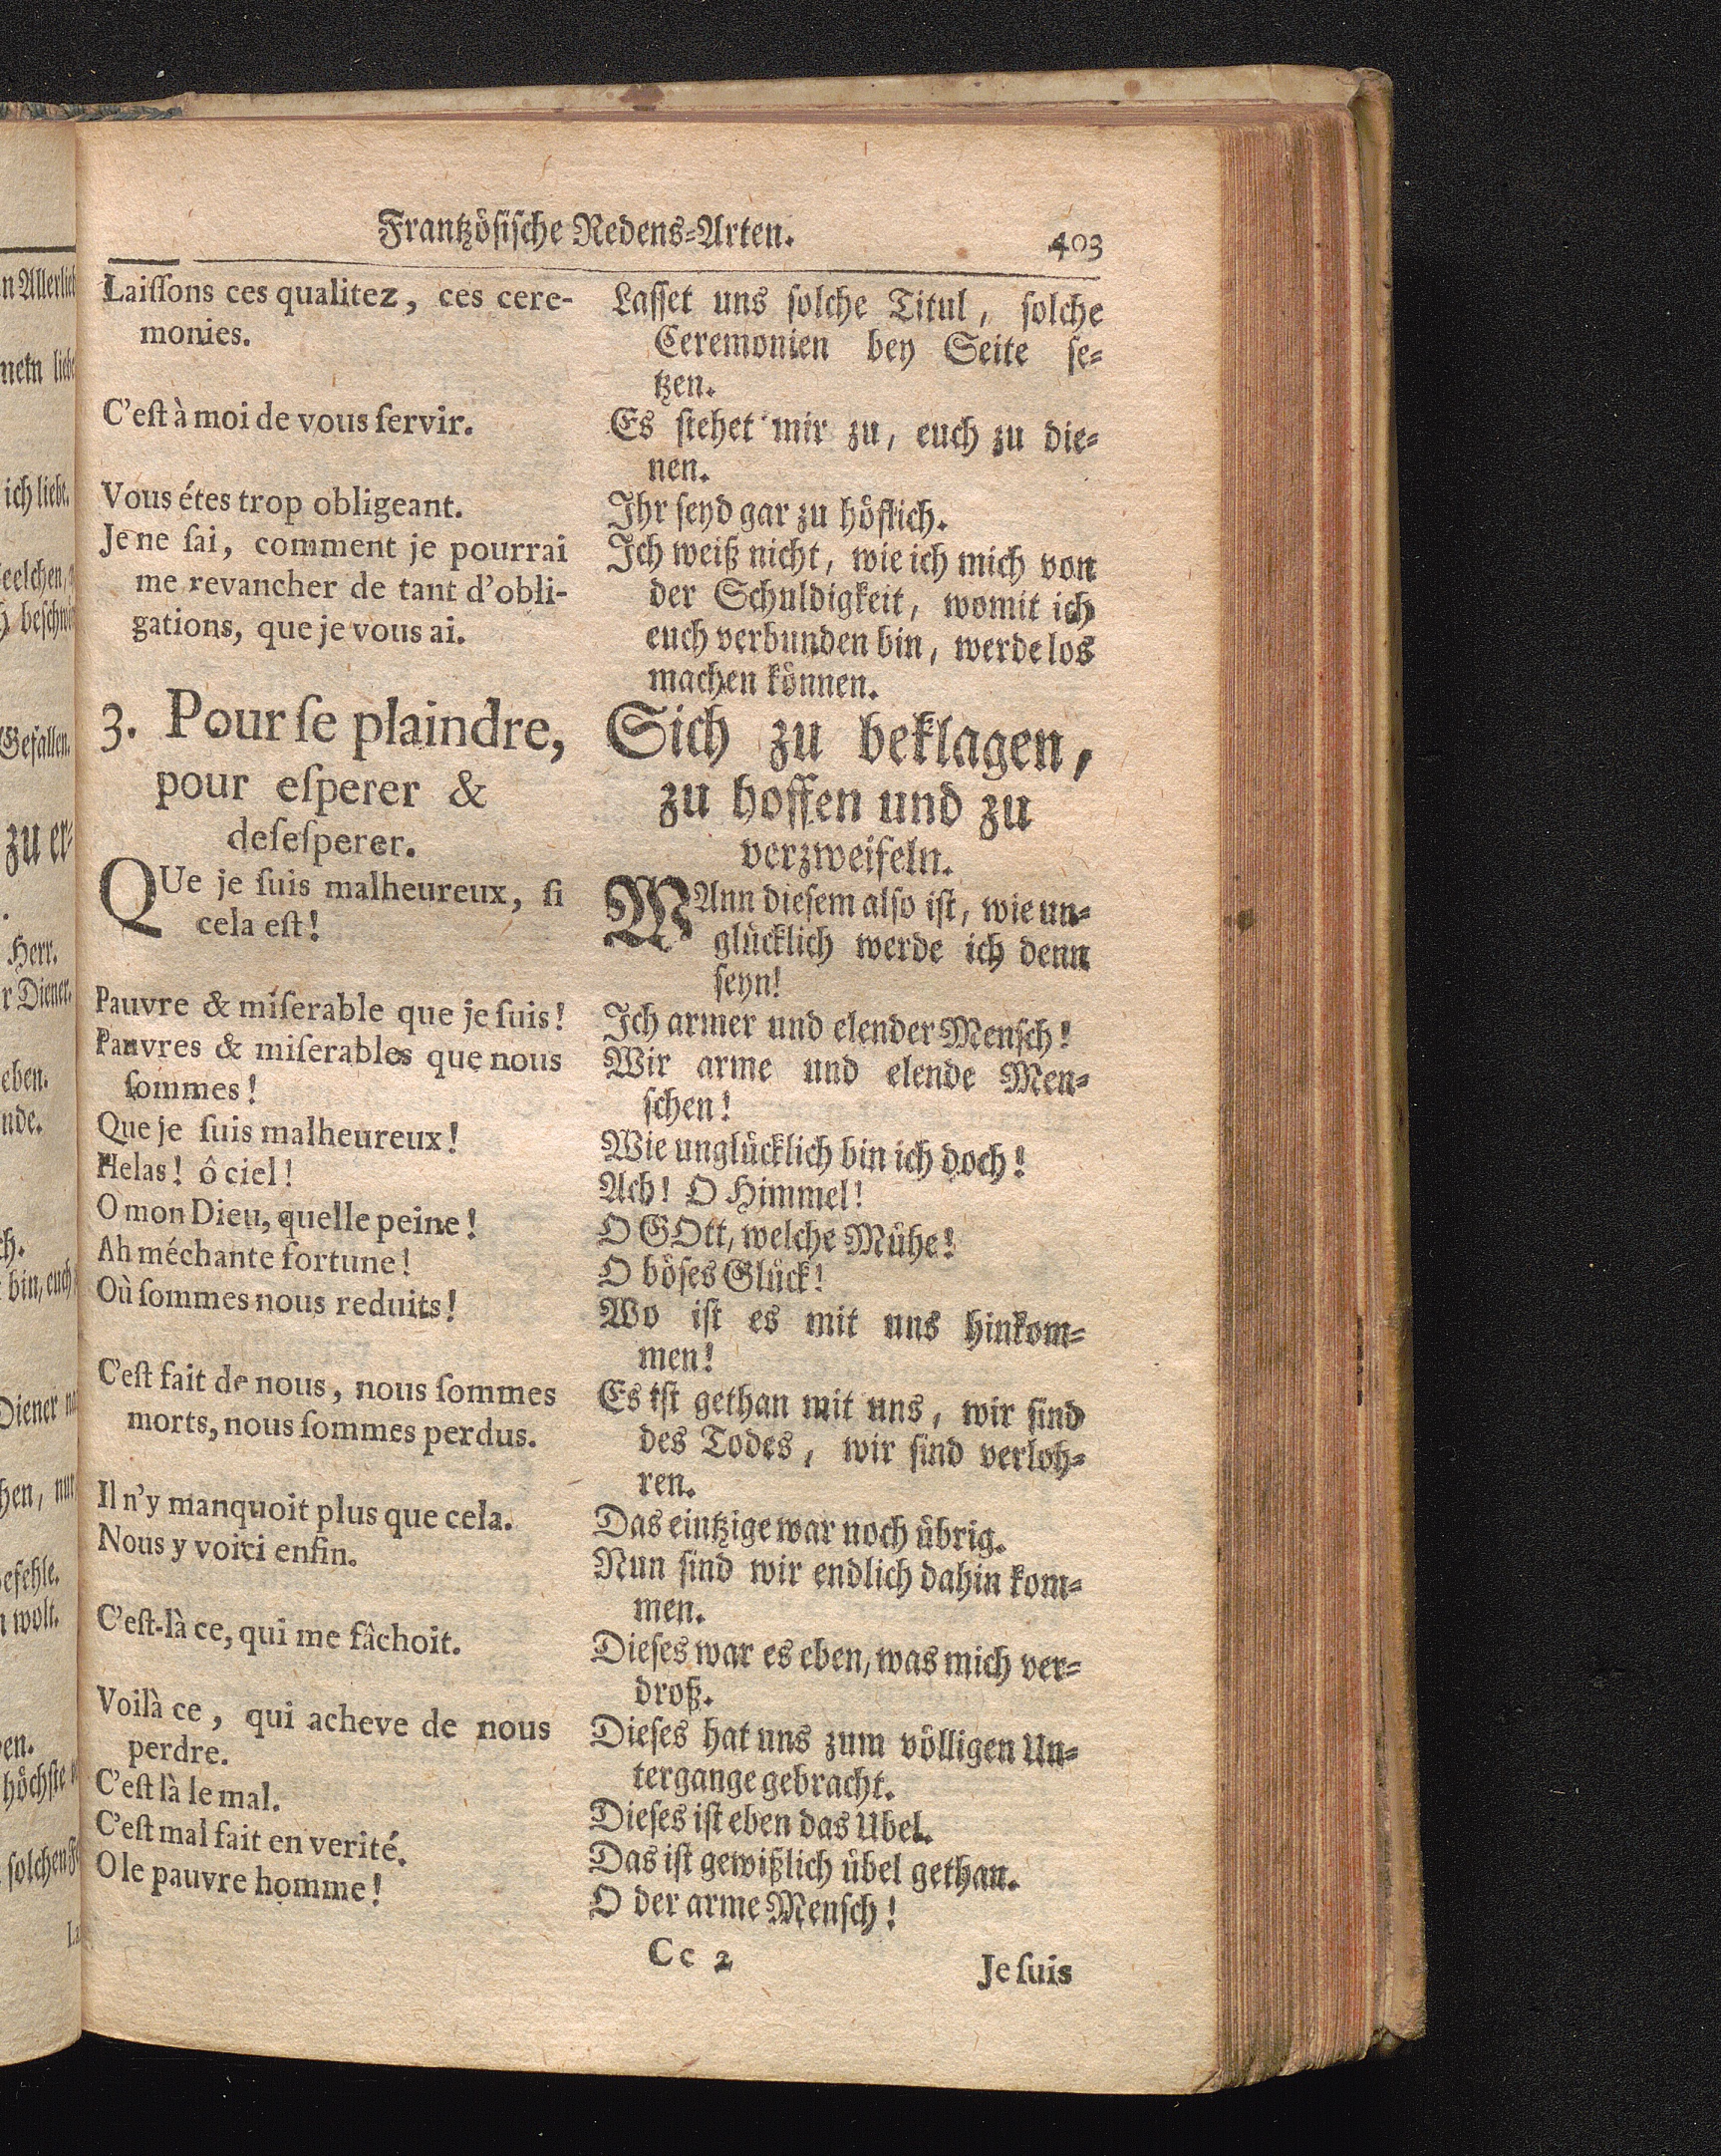 Frantzösische Redens-Arten.
403
Laiſſons ces qualitez, ces cere-
monies.
C'eſt à moi de vous ſervir.
Vous étes trop obligeant.
Je ne ſai, comment je pourrai
me revancher de tant d'obli-
gations, que je vous ai.
3. Pour ſe plaindre,
pour eſperer &
deſeſperer.
QUe je ſuis malheureux, ſi
cela eſt!
Pauvre & miſerable que je ſuis!
Pauvres & miſerables que nous
ſommes!
Que je ſuis malheureux!
Helas! ô ciel!
O mon Dieu, quelle peine!
Ah méchante fortune!
Où ſommes nous reduits!
C'eſt fait de nous, nous ſommes
morts, nous ſommes perdus.
Il n'y manquoit plus que cela.
Nous y voici enfin.
C'eſt-là ce, qui me fâchoit.
Voilà ce, qui acheve de nous
perdre.
C'eſt là le mal.
C'eſt mal fait en verité.
O le pauvre homme!
Laſſet uns ſolche Titul, ſolche
Ceremonien bey Seite ſe-
tzen.
Es ſtehet mir zu, euch zu die-
nen.
Ihr ſeyd gar zu höflich.
Ich weiß nicht, wie ich mich von
der Schuldigkeit, womit ich
euch verbunden bin, werde los
machen können.
Sich zu beklagen,
zu hoffen und zu
verzweifeln.
WAnn dieſem alſo iſt, wie un-
glücklich werde ich denn
ſeyn!
Ich armer und elender Menſch!
Wir arme und elende Men-
ſchen!
Wie unglücklich bin ich doch!
Ach! O Himmel!
O GOtt, welche Mühe!
O böſes Glück!
Wo iſt es mit uns hinkom-
men!
Es iſt gethan mit uns, wir ſind
des Todes, wir ſind verloh-
ren.
Das eintzige war noch übrig.
Nun ſind wir endlich dahin kom-
men.
Dieſes war es eben, was mich ver-
droß.
Dieſes hat uns zum völligen Un-
tergange gebracht.
Dieſes iſt eben das Ubel.
Das iſt gewißlich übel gethan.
O der arme Menſch!
Cc 2
Je ſuis
ich liebe.
Gefallen.
zu er-
Herr.
r Diener.
eben.
bin, euch
Diener
wolt.
höchſte
ſolchen